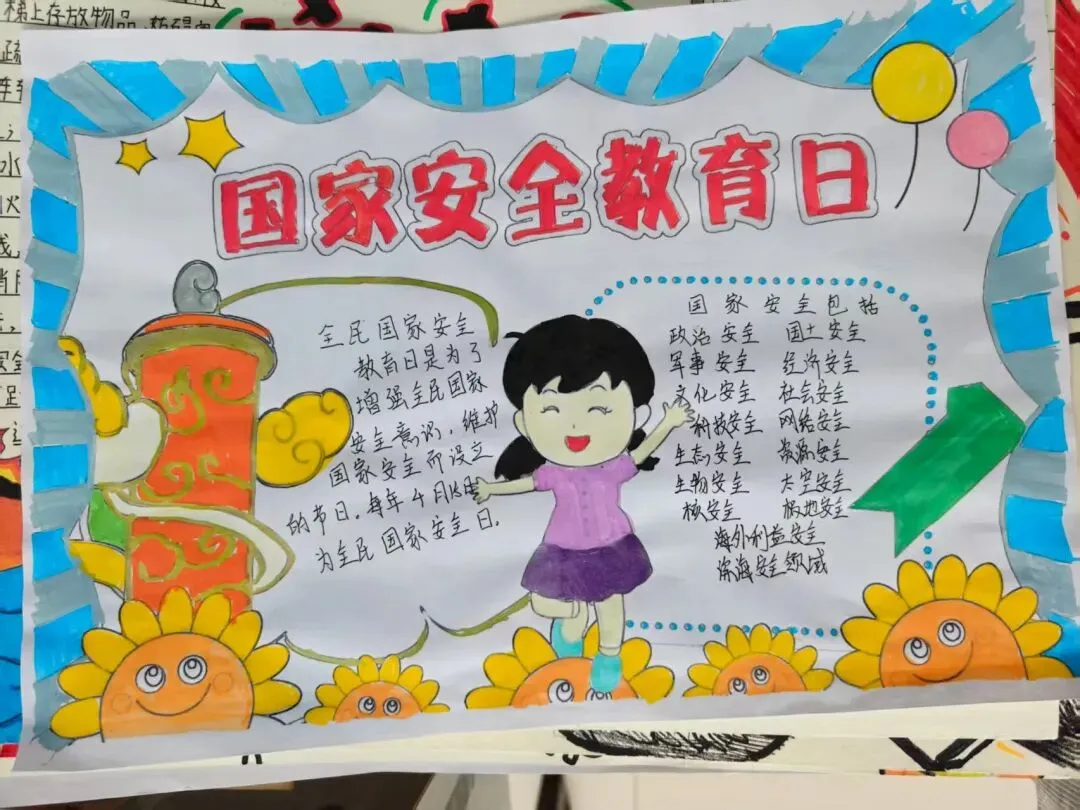 梯上存放物品
国家安全教育日
全民国家安全
教育日是为了
增强全民国家
安全意识，维护
国家安全而设立
的节日，每年4月15日
为全民国家安全日.
国家安全包括
政治安全 国土安全
军事安全 经济安全
文化安全 社会安全
科技安全 网络安全
生态安全 资源安全
生物安全 太空安全
核安全 极地安全
海外利益安全
深海安全领域